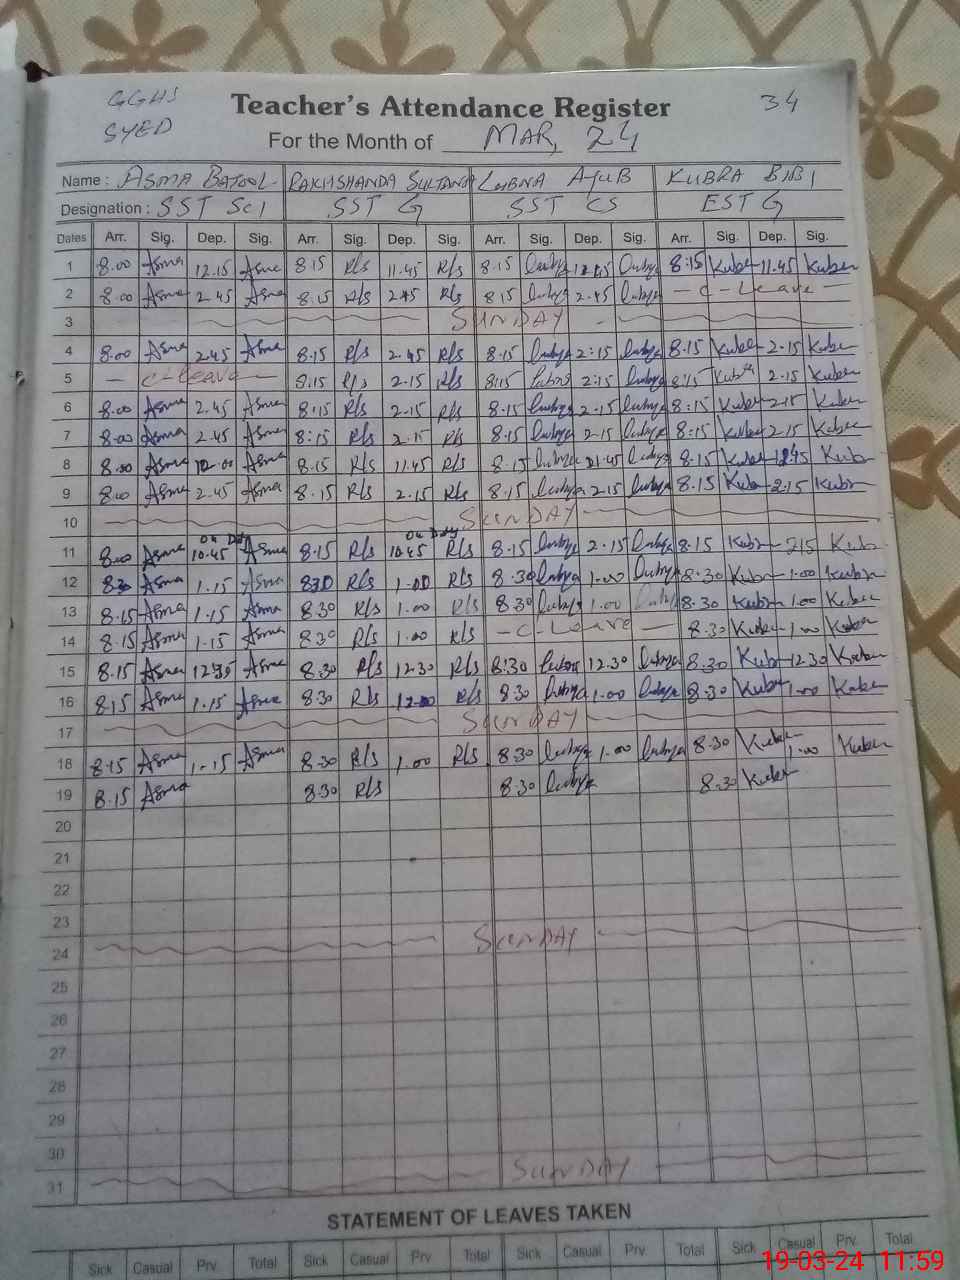 GGHS
SYED
Teacher's Attendance Register
34
For the Month of MAR, 24
Name : ASMA BATOOL RAKHSHANDA SULTANA LUBNA AYUB KUBRA BIBI
Designation : SST Sci SST G SST CS EST G
Dates Arr. Sig. Dep. Sig. Arr. Sig. Dep. Sig. Arr. Sig. Dep. Sig. Arr. Sig. Dep. Sig.
1 8.00 Asma 12.15 Asma 8.15 R/s 11.45 R/s 8.15 8:15 11.45
2 8.00 Asma 2.45 Asma 8.15 R/s 2.45 R/s 8.15 2.45 - C - Leave -
3 SUNDAY
4 8.00 Asma 2.45 Asma 8.15 R/s 2.45 R/s 8.15 2:15 8.15 2.15
5 - C - Leave - 8:15 R/s 2.15 R/s 8:15 2:15 8:15 2.15
6 8.00 Asma 2.45 Asma 8:15 R/s 2.15 R/s 8.15 2.15 8:15 2.15
7 8.00 Asma 2.45 Asma 8:15 R/s 2.15 R/s 8.15 2.15 8:15 2.15
8 8.00 Asma Asma 8.15 R/s 11.45 R/s 8.15 8.15
9 8.00 Asma 2.45 Asma 8.15 R/s 2.15 R/s 8.15 2.15 8.15 2.15
10 SUNDAY
On Duty On Duty
11 8.00 Asma 10.45 Asma 8.15 R/s 10.45 R/s 8.15 2.15 8.15 215
12 Asma 1.15 Asma 830 R/s 1.00 R/s 8.30 1.00 8.30 1.00
13 8.15 Asma 1.15 Asma 8.30 R/s 1.00 R/s 8.30 1.00 8.30 1.00
14 8.15 Asma 1.15 Asma 8.30 R/s 1.00 R/s - C - Leave - 8.30 1.00
15 8.15 Asma Asma 8.30 R/s 12.30 R/s 8:30 12.30 8.30 12.30
16 8.15 Asma 1.15 Asma 8.30 R/s R/s 8.30 1.00 8.30 1.00
17 SUNDAY
18 8.15 Asma 1.15 Asma 8.30 R/s 1.00 R/s 8.30 1.00 8.30 1.00
19 8.15 Asma 8.30 R/s 8.30 8.30
20
21
22
23
24 SUNDAY
25
26
27
28
29
30
31 SUNDAY
STATEMENT OF LEAVES TAKEN
Sick Casual Prv. Total Sick Casual Prv. Total Sick Casual Prv. Total Sick Casual Prv. Total
19-03-24 11:59